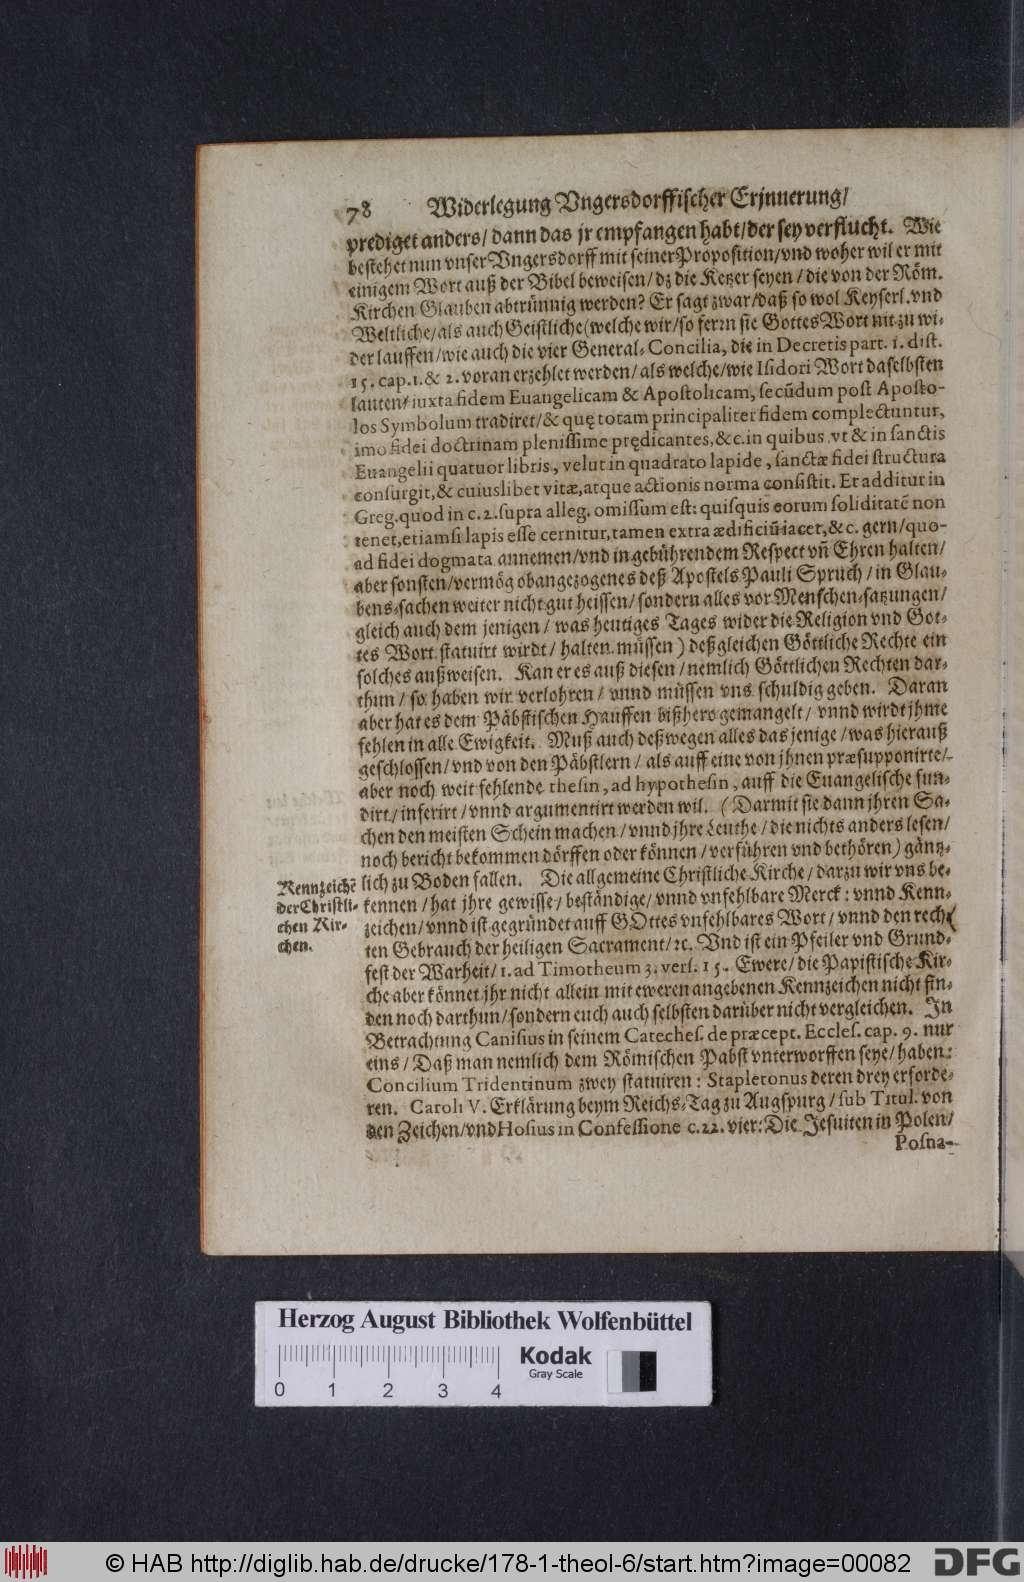 78 Widerlegung Vngersdorffischer Erjnnerung/
prediget anders/ dann das jr empfangen habt/ der sey verflucht. Wie
bestehet nun vnser Vngersdorff mit seiner Proposition/ vnd woher wil er mit
einigem Wort auß der Bibel beweisen/ dz die Ketzer seyen/ die von der Röm.
Kirchen Glauben abtrünnig werden? Er sagt zwar/ daß so wol Keyserl. vnd
Weltliche/ als auch Geistliche (welche wir/ so fern sie Gottes Wort nit zu wi-
der lauffen/ wie auch die vier General-Concilia, die in Decretis part. 1. dist.
15. cap. 1. & 2. voran erzehlet werden/ als welche/ wie Isidori Wort daselbsten
lauten/ iuxta fidem Euangelicam & Apostolicam, secūdum post Aposto-
los Symbolum tradiret/ & quę totam principaliter fidem complectuntur,
imo fidei doctrinam plenissime prędicantes, &c. in quibus, vt & in sanctis
Euangelii quatuor libris, velut in quadrato lapide, sanctæ fidei structura
consurgit, & cuiuslibet vitæ, atque actionis norma consistit. Et additur in
Greg. quod in c. 2. supra alleg. omissum est: quisquis eorum soliditatē non
tenet, etiamsi lapis esse cernitur, tamen extra ædificiū iacet, &c. gern/ quo-
ad fidei dogmata annemen/ vnd in gebührendem Respect vñ Ehren halten/
aber sonsten/ vermög obangezogenes deß Apostels Pauli Spruch/ in Glau-
bens-sachen weiter nicht gut heissen/ sondern alles vor Menschen-satzungen/
gleich auch dem jenigen/ was heutiges Tages wider die Religion vnd Got-
tes Wort statuirt wirdt/ halten müssen) deßgleichen Göttliche Rechte ein
solches außweisen. Kan er es auß diesen/ nemlich Göttlichen Rechten dar-
thun/ so haben wir verlohren/ vnnd müssen vns schuldig geben. Daran
aber hat es dem Päbstischen Hauffen bißhero gemangelt/ vnnd wirdt jhme
fehlen in alle Ewigkeit. Muß auch deßwegen alles das jenige/ was hierauß
geschlossen/ vnd von den Päbstlern/ als auff eine von jhnen præsupponirte/
aber noch weit fehlende thesin, ad hypothesin, auff die Euangelische fun-
dirt/ inferirt/ vnnd argumentirt werden wil. (Darmit sie dann jhren Sa-
chen den meisten Schein machen/ vnnd jhre Leuthe/ die nichts anders lesen/
noch bericht bekommen dörffen oder können/ verführen vnd bethören) gäntz-
lich zu Boden fallen. Die allgemeine Christliche Kirche/ darzu wir vns be-
kennen/ hat jhre gewisse/ beständige/ vnnd vnfehlbare Merck: vnnd Kenn-
zeichen/ vnnd ist gegründet auff GOttes vnfehlbares Wort/ vnnd den rech-
ten Gebrauch der heiligen Sacrament/ ꝛc. Vnd ist ein Pfeiler vnd Grund-
fest der Warheit/ 1. ad Timotheum 3. vers. 15. Ewere/ die Papistische Kir-
che aber könnet jhr nicht allein mit eweren angebenen Kennzeichen nicht fin-
den noch darthun/ sondern euch auch selbsten darüber nicht vergleichen. In
Betrachtung Canisius in seinem Cateches. de præcept. Eccles. cap. 9. nur
eins/ Daß man nemlich dem Römischen Pabst vnterworffen seye/ haben:
Concilium Tridentinum zwey statuiren: Stapletonus deren drey erforde-
ren. Caroli V. Erklärung beym Reichs-Tag zu Augspurg/ sub Titul. von
den Zeichen/ vnd Hosius in Confessione c. 22. vier: Die Jesuiten in Polen/
Posna-
Kennzeichē
der Christli-
chen Kir-
chen.
Herzog August Bibliothek Wolfenbüttel
Kodak
Gray Scale
0 1 2 3 4
© HAB http://diglib.hab.de/drucke/178-1-theol-6/start.htm?image=00082
DFG